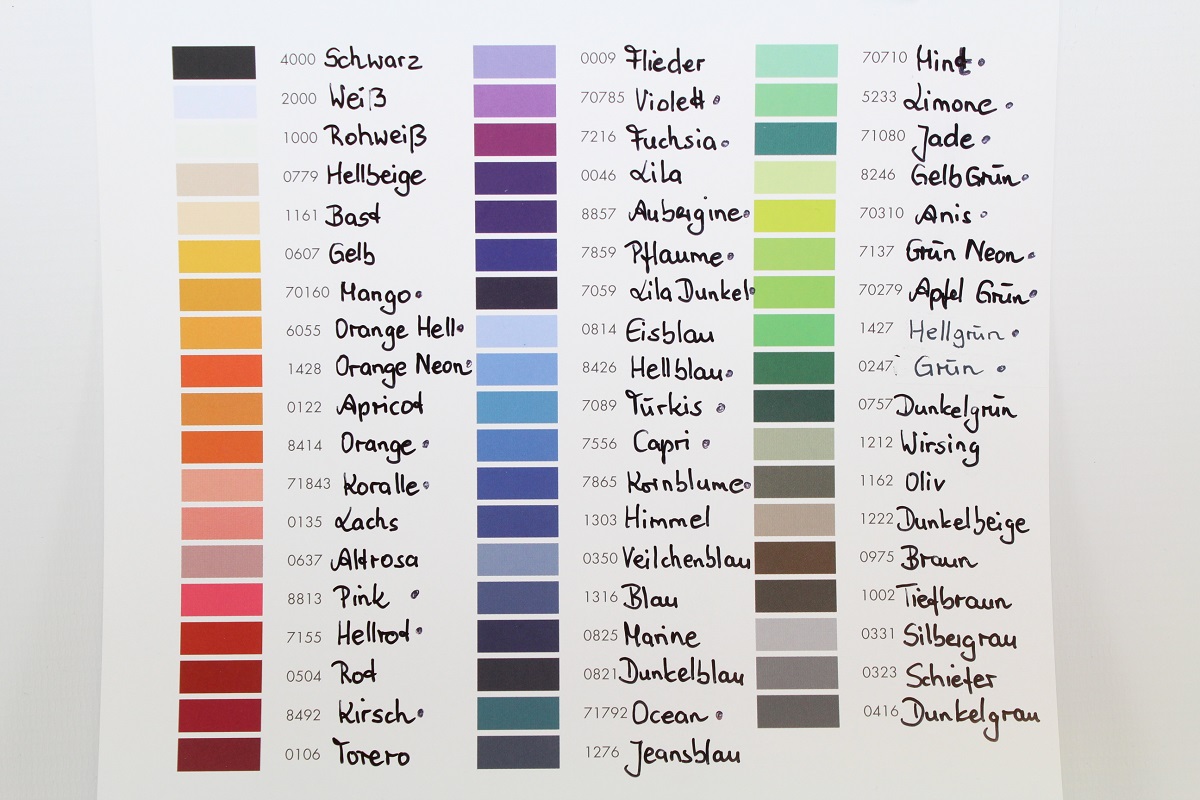 4000 Schwarz
2000 Weiß
1000 Rohweiß
0779 Hellbeige
1161 Bast
0607 Gelb
70160 Mango •
6055 Orange Hell •
1428 Orange Neon •
0122 Apricot
8414 Orange •
71843 Koralle •
0135 Lachs
0637 Altrosa
8813 Pink •
7155 Hellrot •
0504 Rot
8492 Kirsch •
0106 Torero
0009 Flieder
70785 Violett •
7216 Fuchsia •
0046 Lila
8857 Aubergine •
7859 Pflaume •
7059 Lila Dunkel •
0814 Eisblau
8426 Hellblau •
7089 Türkis •
7556 Capri •
7865 Kornblume •
1303 Himmel
0350 Veilchenblau
1316 Blau
0825 Marine
0821 Dunkelblau
71792 Ocean •
1276 Jeansblau
70710 Mint •
5233 Limone •
71080 Jade •
8246 Gelb Grün •
70310 Anis •
7137 Grün Neon •
70279 Apfel Grün •
1427 Hellgrün •
0247 Grün •
0757 Dunkelgrün
1212 Wirsing
1162 Oliv
1222 Dunkelbeige
0975 Braun
1002 Tiefbraun
0331 Silbergrau
0323 Schiefer
0416 Dunkelgrau